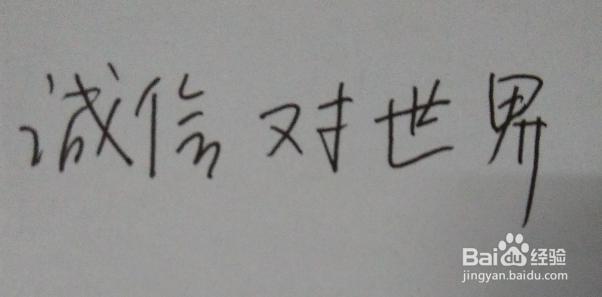 诚信对世界
Baidu经验
jingyan.baidu.com